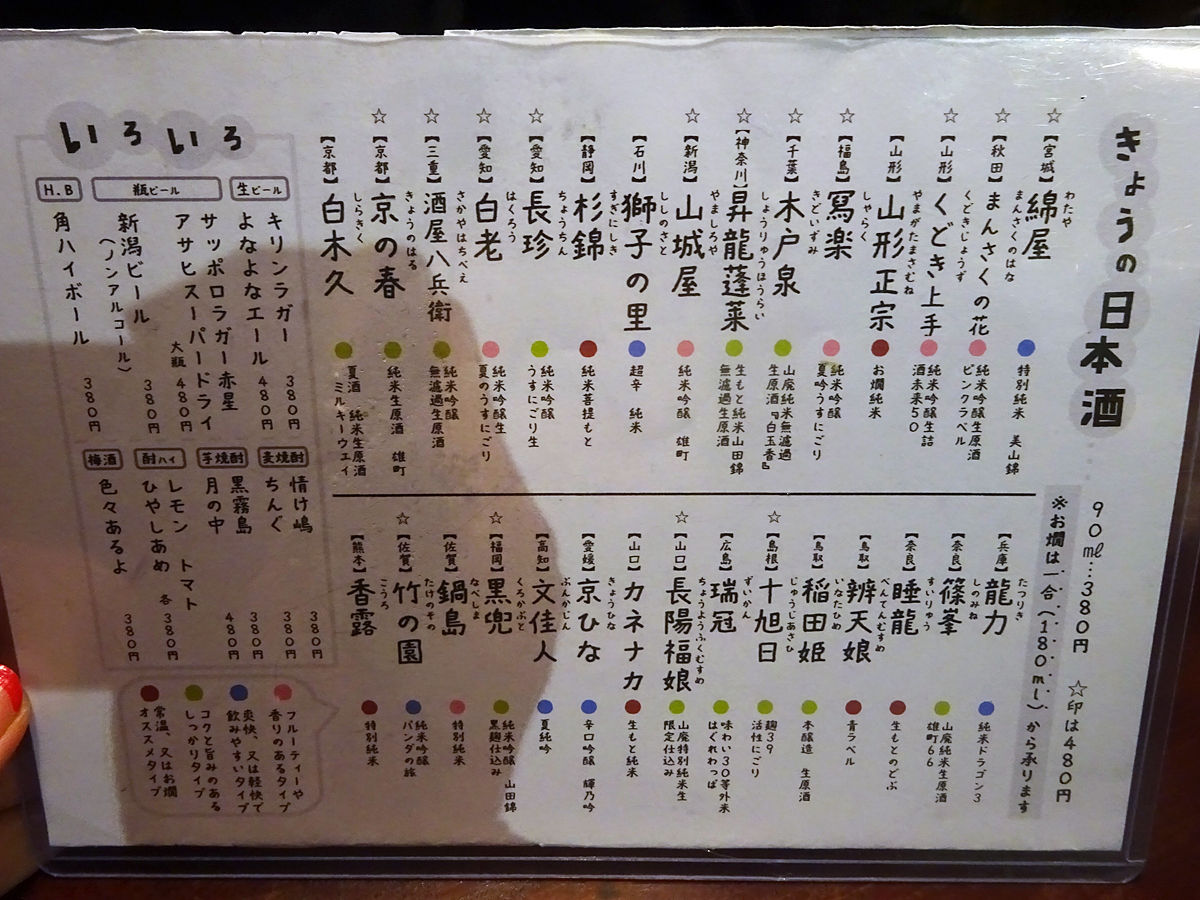 きょうの日本酒
90ml…380円 ☆印は480円
※お燗は一合(180ml)から承ります
☆【宮城】綿屋 わたや
特別純米 美山錦
☆【秋田】まんさくの花 まんさくのはな
純米吟醸生原酒
ピンクラベル
☆【山形】くどき上手 くどきじょうず
純米吟醸生詰
酒未来50
【山形】山形正宗 やまがたまさむね
お燗純米
☆【福島】冩楽 しゃらく
純米吟醸
夏吟うすにごり
☆【千葉】木戸泉 きどいずみ
山廃純米無濾過
生原酒『白玉香』
☆【神奈川】昇龍蓬莱 しょうりゅうほうらい
生もと純米山田錦
無濾過生原酒
☆【新潟】山城屋 やましろや
純米吟醸 雄町
【石川】獅子の里 ししのさと
超辛 純米
【静岡】杉錦 すぎにしき
純米菩提もと
☆【愛知】長珍 ちょうちん
純米吟醸
うすにごり生
☆【愛知】白老 はくろう
純米吟醸生
夏のうすにごり
☆【三重】酒屋八兵衛 さかやはちべえ
純米吟醸
無濾過生原酒
☆【京都】京の春 きょうのはる
純米生原酒 雄町
【京都】白木久 しらきく
夏酒 純米生原酒
ミルキーウエイ
【兵庫】龍力 たつりき
純米ドラゴン3
【奈良】篠峯 しのみね
山廃純米生原酒
雄町66
【奈良】睡龍 すいりゅう
生もとのどぶ
【鳥取】辨天娘 べんてんむすめ
青ラベル
【鳥取】稲田姫 いなたひめ
本醸造 生原酒
☆【島根】十旭日 じゅうじあさひ
麹39
活性にごり
【広島】瑞冠 ずいかん
味わい30等外米
はぐれわっぱ
☆【山口】長陽福娘 ちょうようふくむすめ
山廃特別純米生
限定仕込み
【山口】カネナカ
生もと純米
【愛媛】京ひな きょうひな
辛口吟醸 輝乃吟
【高知】文佳人 ぶんかじん
夏純吟
☆【福岡】黒兜 くろかぶと
純米吟醸 山田錦
黒麹仕込み
【佐賀】鍋島 なべしま
特別純米
☆【佐賀】竹の園 たけのその
純米吟醸
パンダの旅
【熊本】香露 こうろ
特別純米
いろいろ
生ビール
キリンラガー 380円
よなよなエール 480円
瓶ビール
サッポロラガー赤星
アサヒスーパードライ
大瓶 480円
新潟ビール 380円
(ノンアルコール)
H.B
角ハイボール 380円
麦焼酎
情け嶋 380円
ちんぐ 380円
芋焼酎
黒霧島 380円
月の中 480円
酎ハイ
レモン トマト
ひやしあめ 各380円
梅酒
色々あるよ 380円
フルーティーや
香りのあるタイプ
爽快、又は軽快で
飲みやすいタイプ
コクと旨みのある
しっかりタイプ
常温、又はお燗
オススメタイプ